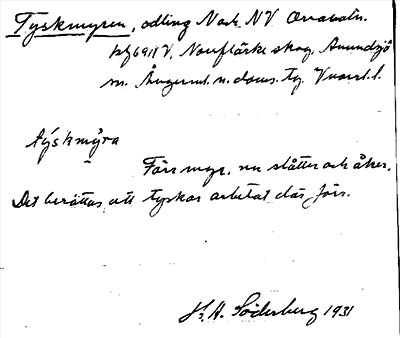 Tyskmyren, odling N och NV Orravatn.
hf69IV, Norrflärke skog, Anundsjö
sn. Ångerml. n. doms. tg. Vnorrl. l.
týskmỳra
Förr myr, nu slåtter och åker.
Det berättas, att tyskar arbetat där förr.
H. A. Söderberg 1931